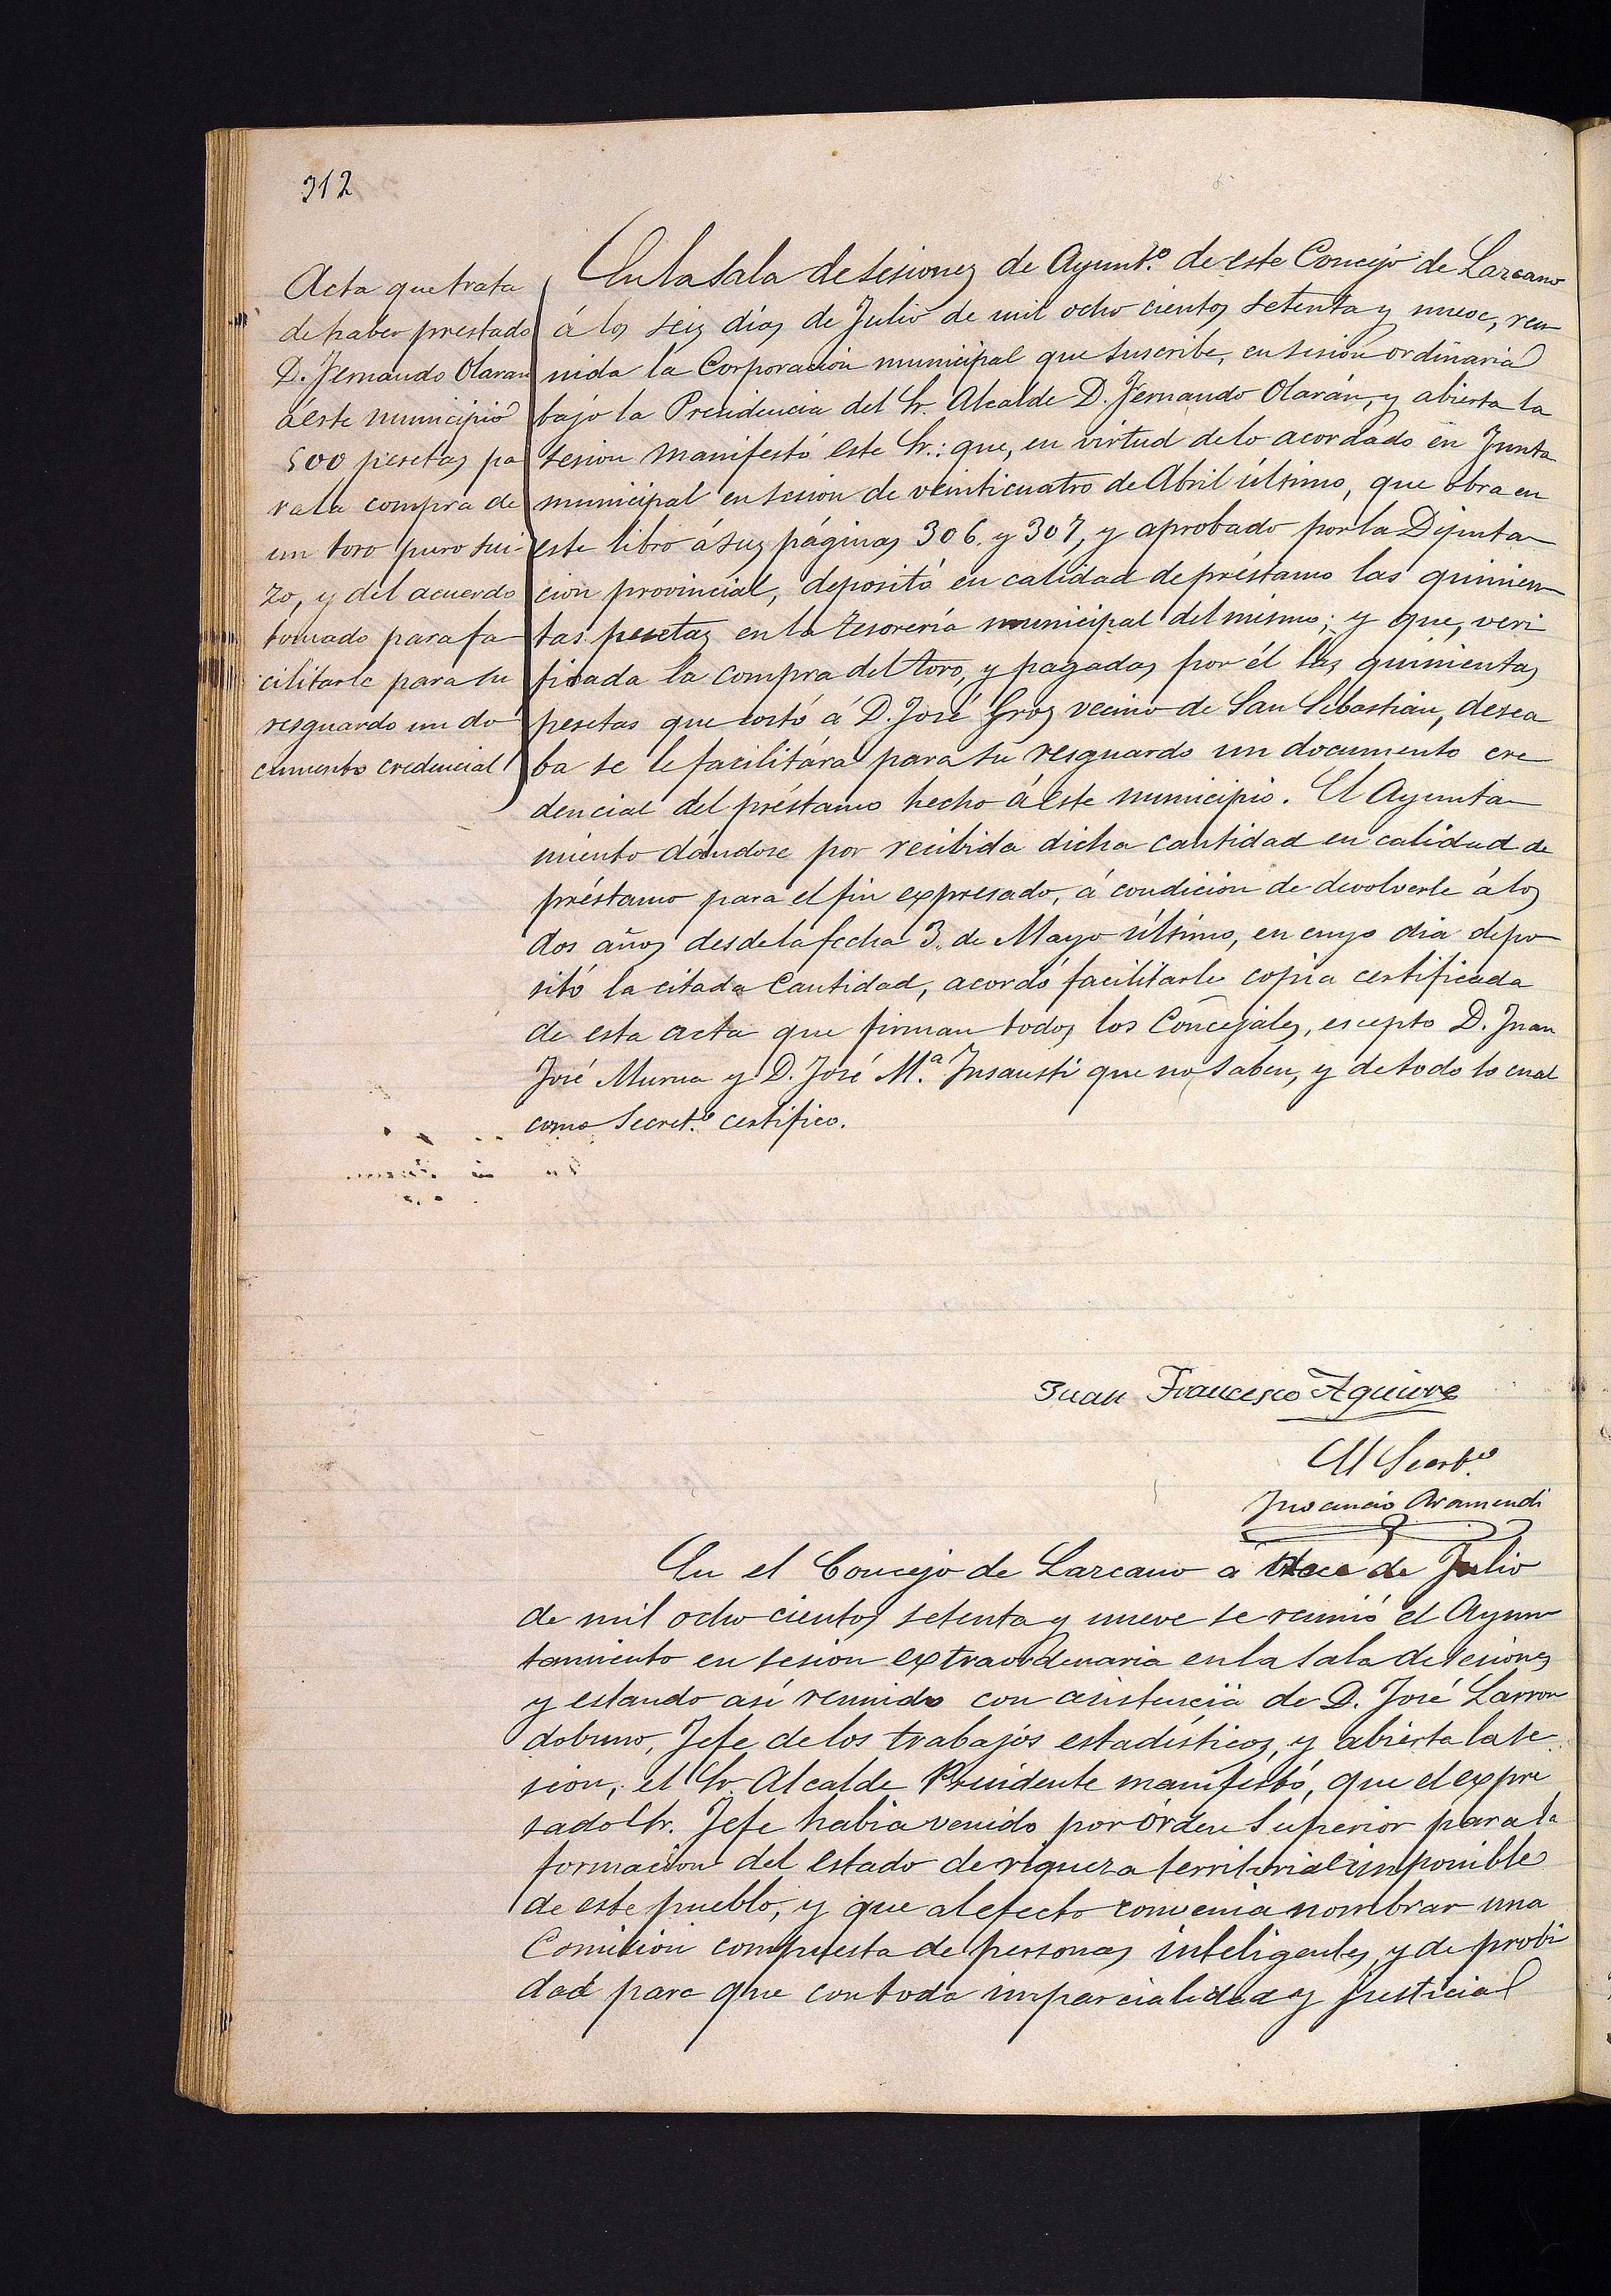 312
Acta que trata
de haber prestado
D. Fernando Olaran
á este municipio
500 pesetas pa
ra la compra de
un toro puro sui-
zo, y del acuerdo
tomado para fa-
cilitarle para su
resguardo un do-
cumento credencial
En la sala de sesiones de Ayunt.º de este Concejo de Lazcano
á los seis dias de Julio de mil ocho cientos setenta y nueve, reu-
nida la Corporacion municipal que suscribe, en sesión ordinaria
bajo la Presidencia del Sr. Alcalde D. Fernando Olarán, y abierta la
sesion manifestó este Sr.: que, en virtud de lo acordado en Junta
municipal en sesion de veinticuatro de Abril último, que obra en
este libro á sus páginas 306 y 307, y aprobado por la Diputa-
cion provincial, depositó en calidad de préstamo las quinien-
tas pesetas en la tesorería municipal del mismo; y que, veri
ficada la compra del toro, y pagadas por él las quinientas
pesetas que costó á D. José Gros vecino de San Sebastian, desea
ba se le facilitára para su resguardo un documento cre
dencial del préstamo hecho á este municipio. El Ayunta-
miento dándose por recibida dicha cantidad en calidad de
préstamo para el fin expresado, á condición de devolverle á los
dos años desde la fecha 3 de Mayo último, en cuyo dia depo-
sitó la citada cantidad, acordó facilitarle copia certificada
de esta acta que firman todos los Concejales, escepto D. Juan
José Murua y D. José M.ª Insausti que no saben, y de todo lo cual
como Secret.º certifico.
Juan Francesco Aguirre
El Secret.º
Inocencio Aramendi
En el Concejo de Lazcano a de Julio
de mil ocho cientos setenta y nueve se reunió el Ayun-
tamiento en sesion extraordenaria en la sala de sesiones
y estando así reunido con asistencia de D. José Larron
dobuno, Jefe de los trabajos estadísticos, y abierta la se-
sion, el Sr. Alcalde Presidente manifestó, que el expre
sado Sr. Jefe habia venido por órden Superior para la
formacion del estado de riqueza territorial imponible
de este pueblo, y que al efecto convenia nombrar una
Comision compuesta de personas inteligentes y de probi
dad para que con toda imparcialidad y justicia